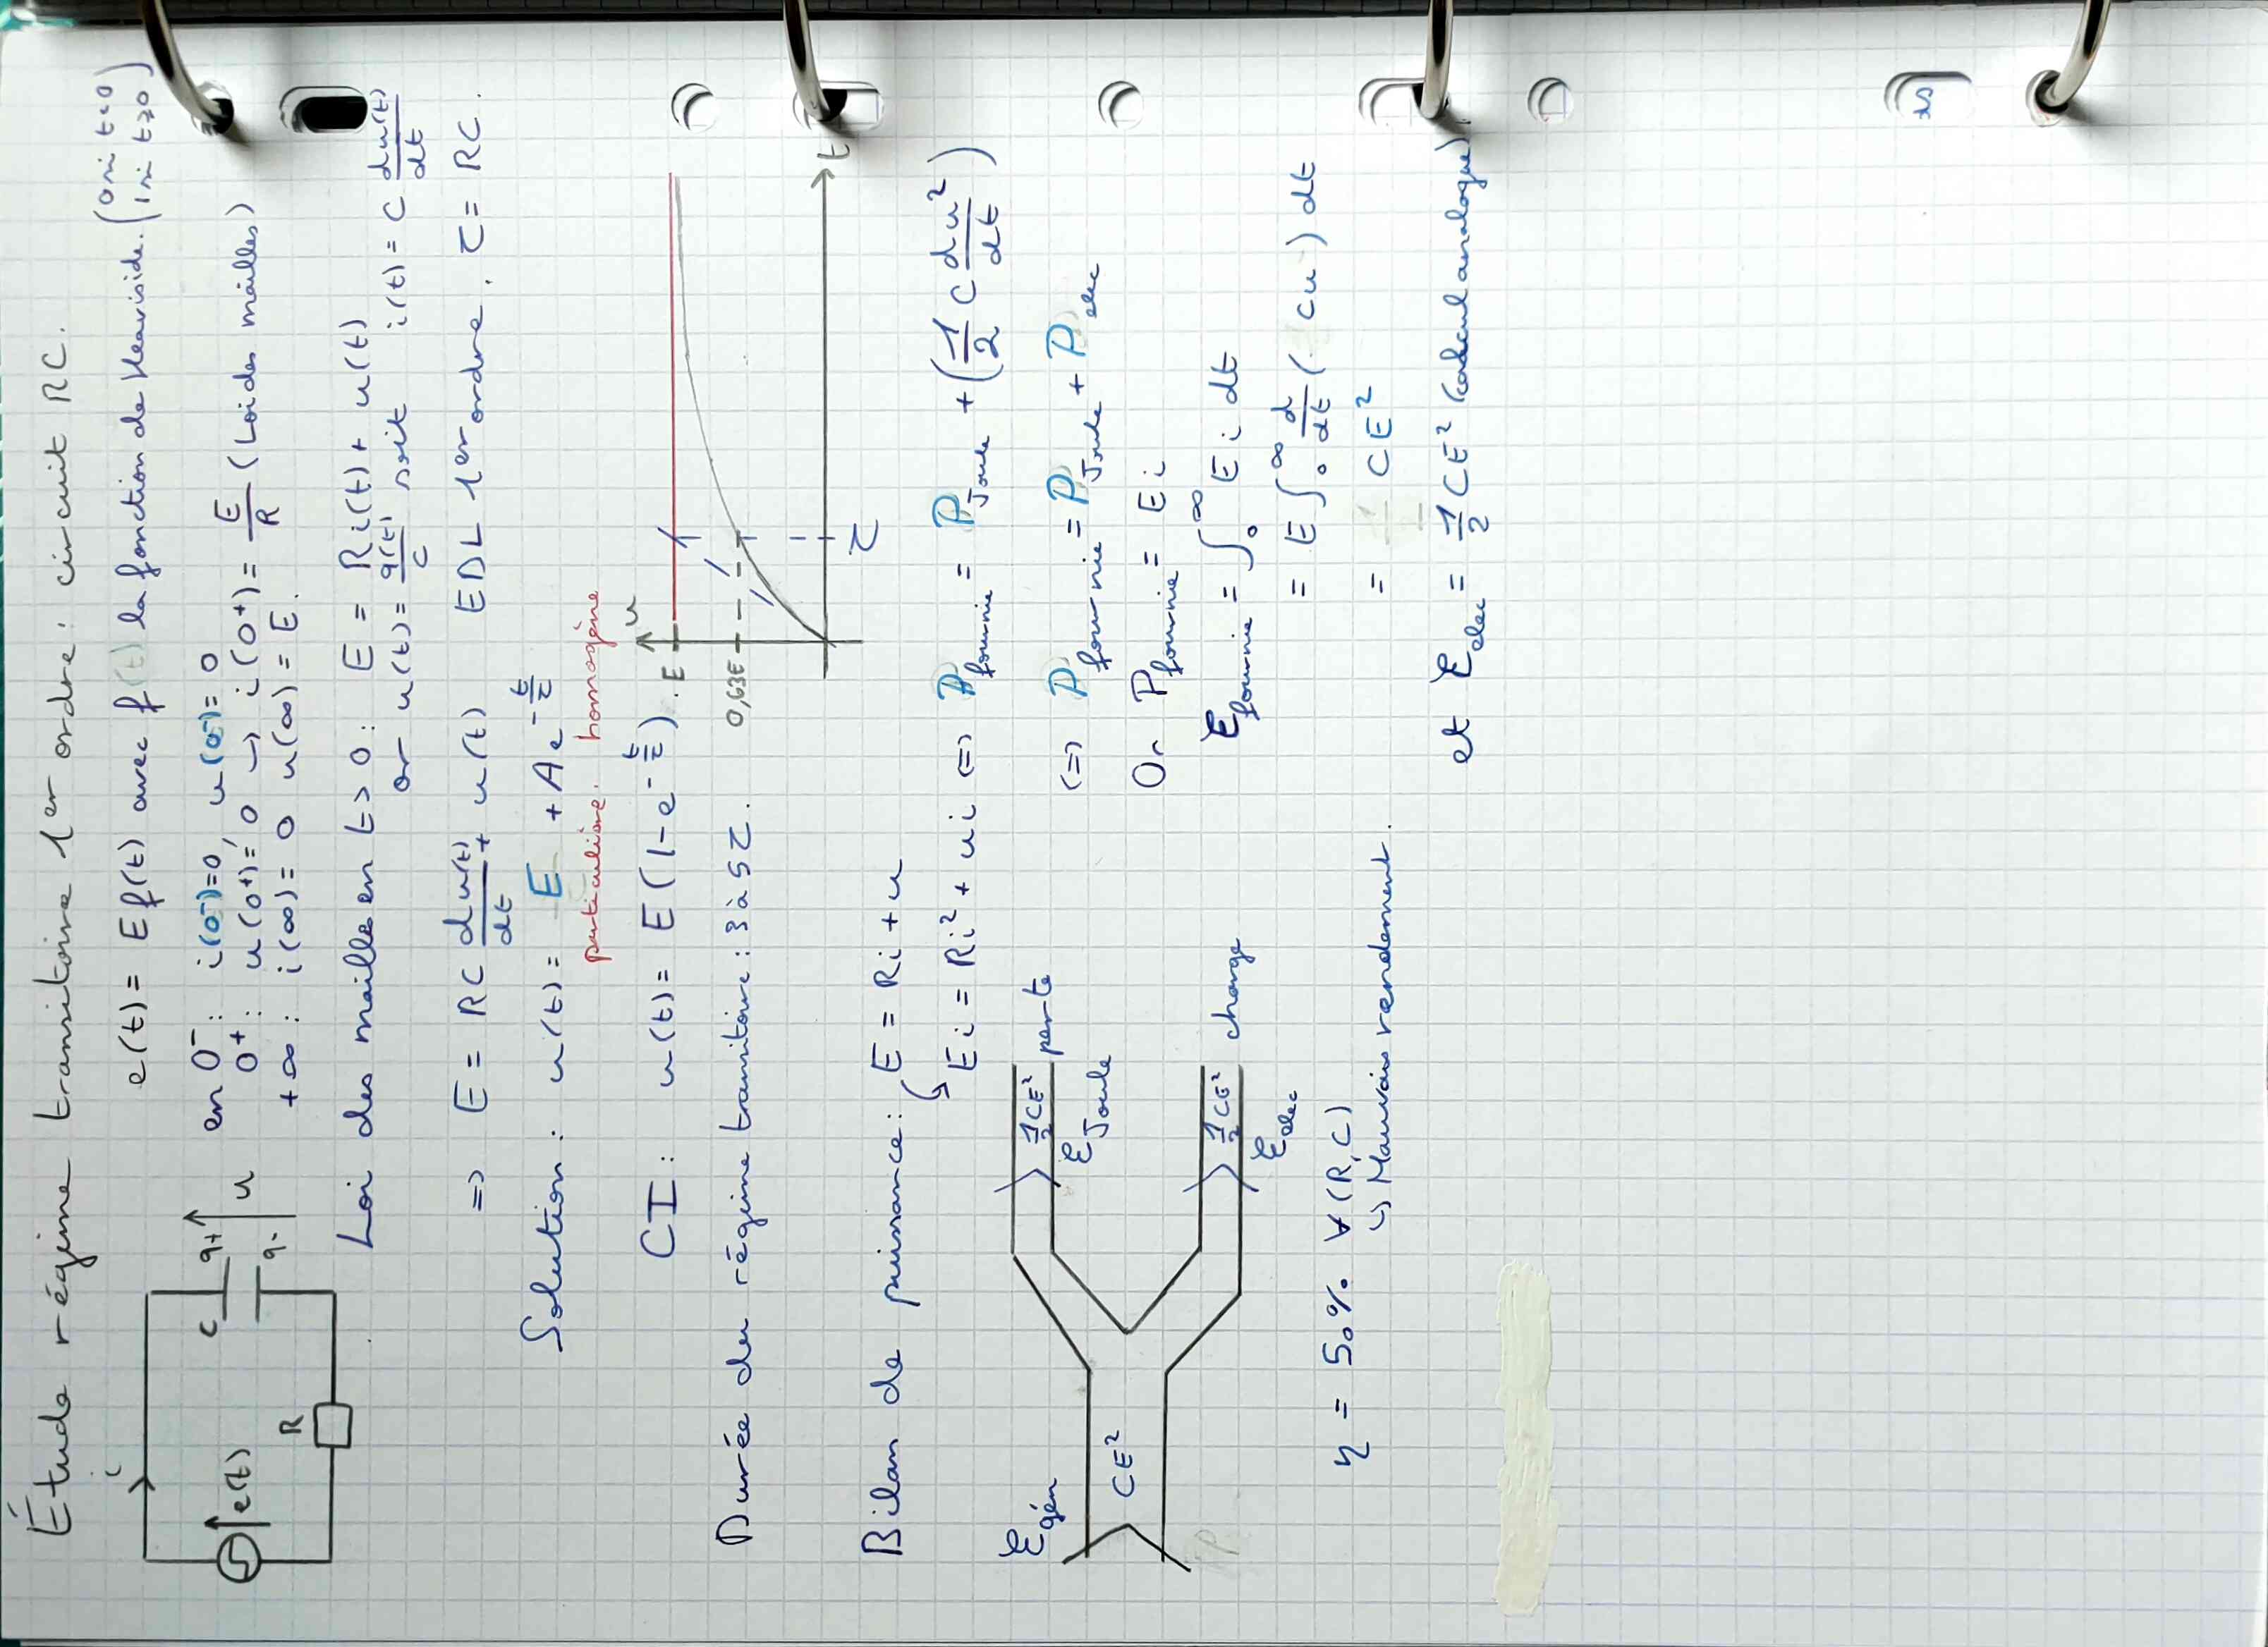 Étude régime transitoire 1er ordre : circuit RC.
e(t) = E f(t) avec f(t) la fonction de Heaviside. (0 si t<0
1 si t≥0)
i
e(t)
R
C
q+
q-
u
en 0⁻ : i(0⁻)=0, u(0⁻)=0
0⁺ : u(0⁺)=0 ↪ i(0⁺) = E/R (Loi des mailles)
+∞ : i(∞) = 0 u(∞) = E.
Loi des mailles en t>0 : E = Ri(t) + u(t)
or u(t) = q(t)/C soit i(t) = C du(t)/dt
=> E = RC du(t)/dt + u(t) EDL 1er ordre. τ = RC.
Solution : u(t) = E + A e^(-t/τ)
particulière. homogène
CI : u(t) = E (1 - e^(-t/τ)).
u
E
0,63E
τ
t
Durée du régime transitoire : 3 à 5τ.
Bilan de puissance : E = Ri + u
↪ Ei = Ri² + ui <=> P fournie = P Joule + (1/2 C du²/dt)
<=> P fournie = P Joule + P elec
Or P fournie = Ei
ℰ fournie = ∫₀^∞ E i dt
= E ∫₀^∞ d/dt ( Cu ) dt
= CE²
et ℰ elec = 1/2 CE² (calcul analogue).
ℰ gén
CE²
1/2 CE² perte
ℰ Joule
1/2 CE² charge
ℰ elec
η = 50% ∀(R,C)
↪ Mauvais rendement.